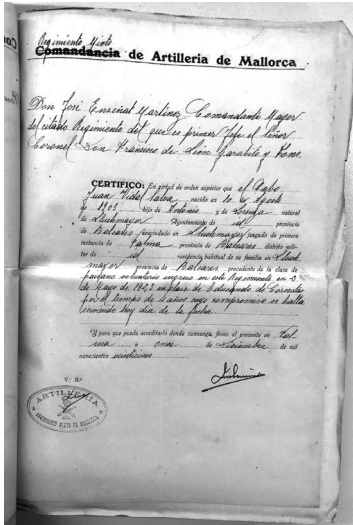 Regimiento Mixto
Comandancia de Artillería de Mallorca
Don José Enseñat Martinez, Comandante Mayor
del citado Regimiento del que es primer Jefe el Señor
Coronel Don Francisco de León Garabito y Fons.
CERTIFICO: En virtud de orden superior que el Cabo
Juan Vidal Salvá nacido en 10 de Agosto
de 1903 hijo de Antonio y de Lorenza natural
de Lluchmayor Ayuntamiento de id provincia
de Baleares juzgado de primera
instancia de Palma provincia de Baleares distrito mili-
tar de id residencia habitual de su familia en Lluch
mayor provincia de Baleares procedente de la clase de
paisano voluntario ingresó en este Regimiento en
de Mayo de 1923 en clase de Educando de Cornetas
por el tiempo de 4 años cuyo compromiso se halla
sirviendo hoy dia de la fecha.
Y para que pueda acreditarlo donde convenga, firmo el presente en Pal-
ma a once de Diciembre de mil
novecientos veinticinco
V.º B.º
ARTILLERIA
REGIMIENTO MIXTO DE MALLORCA